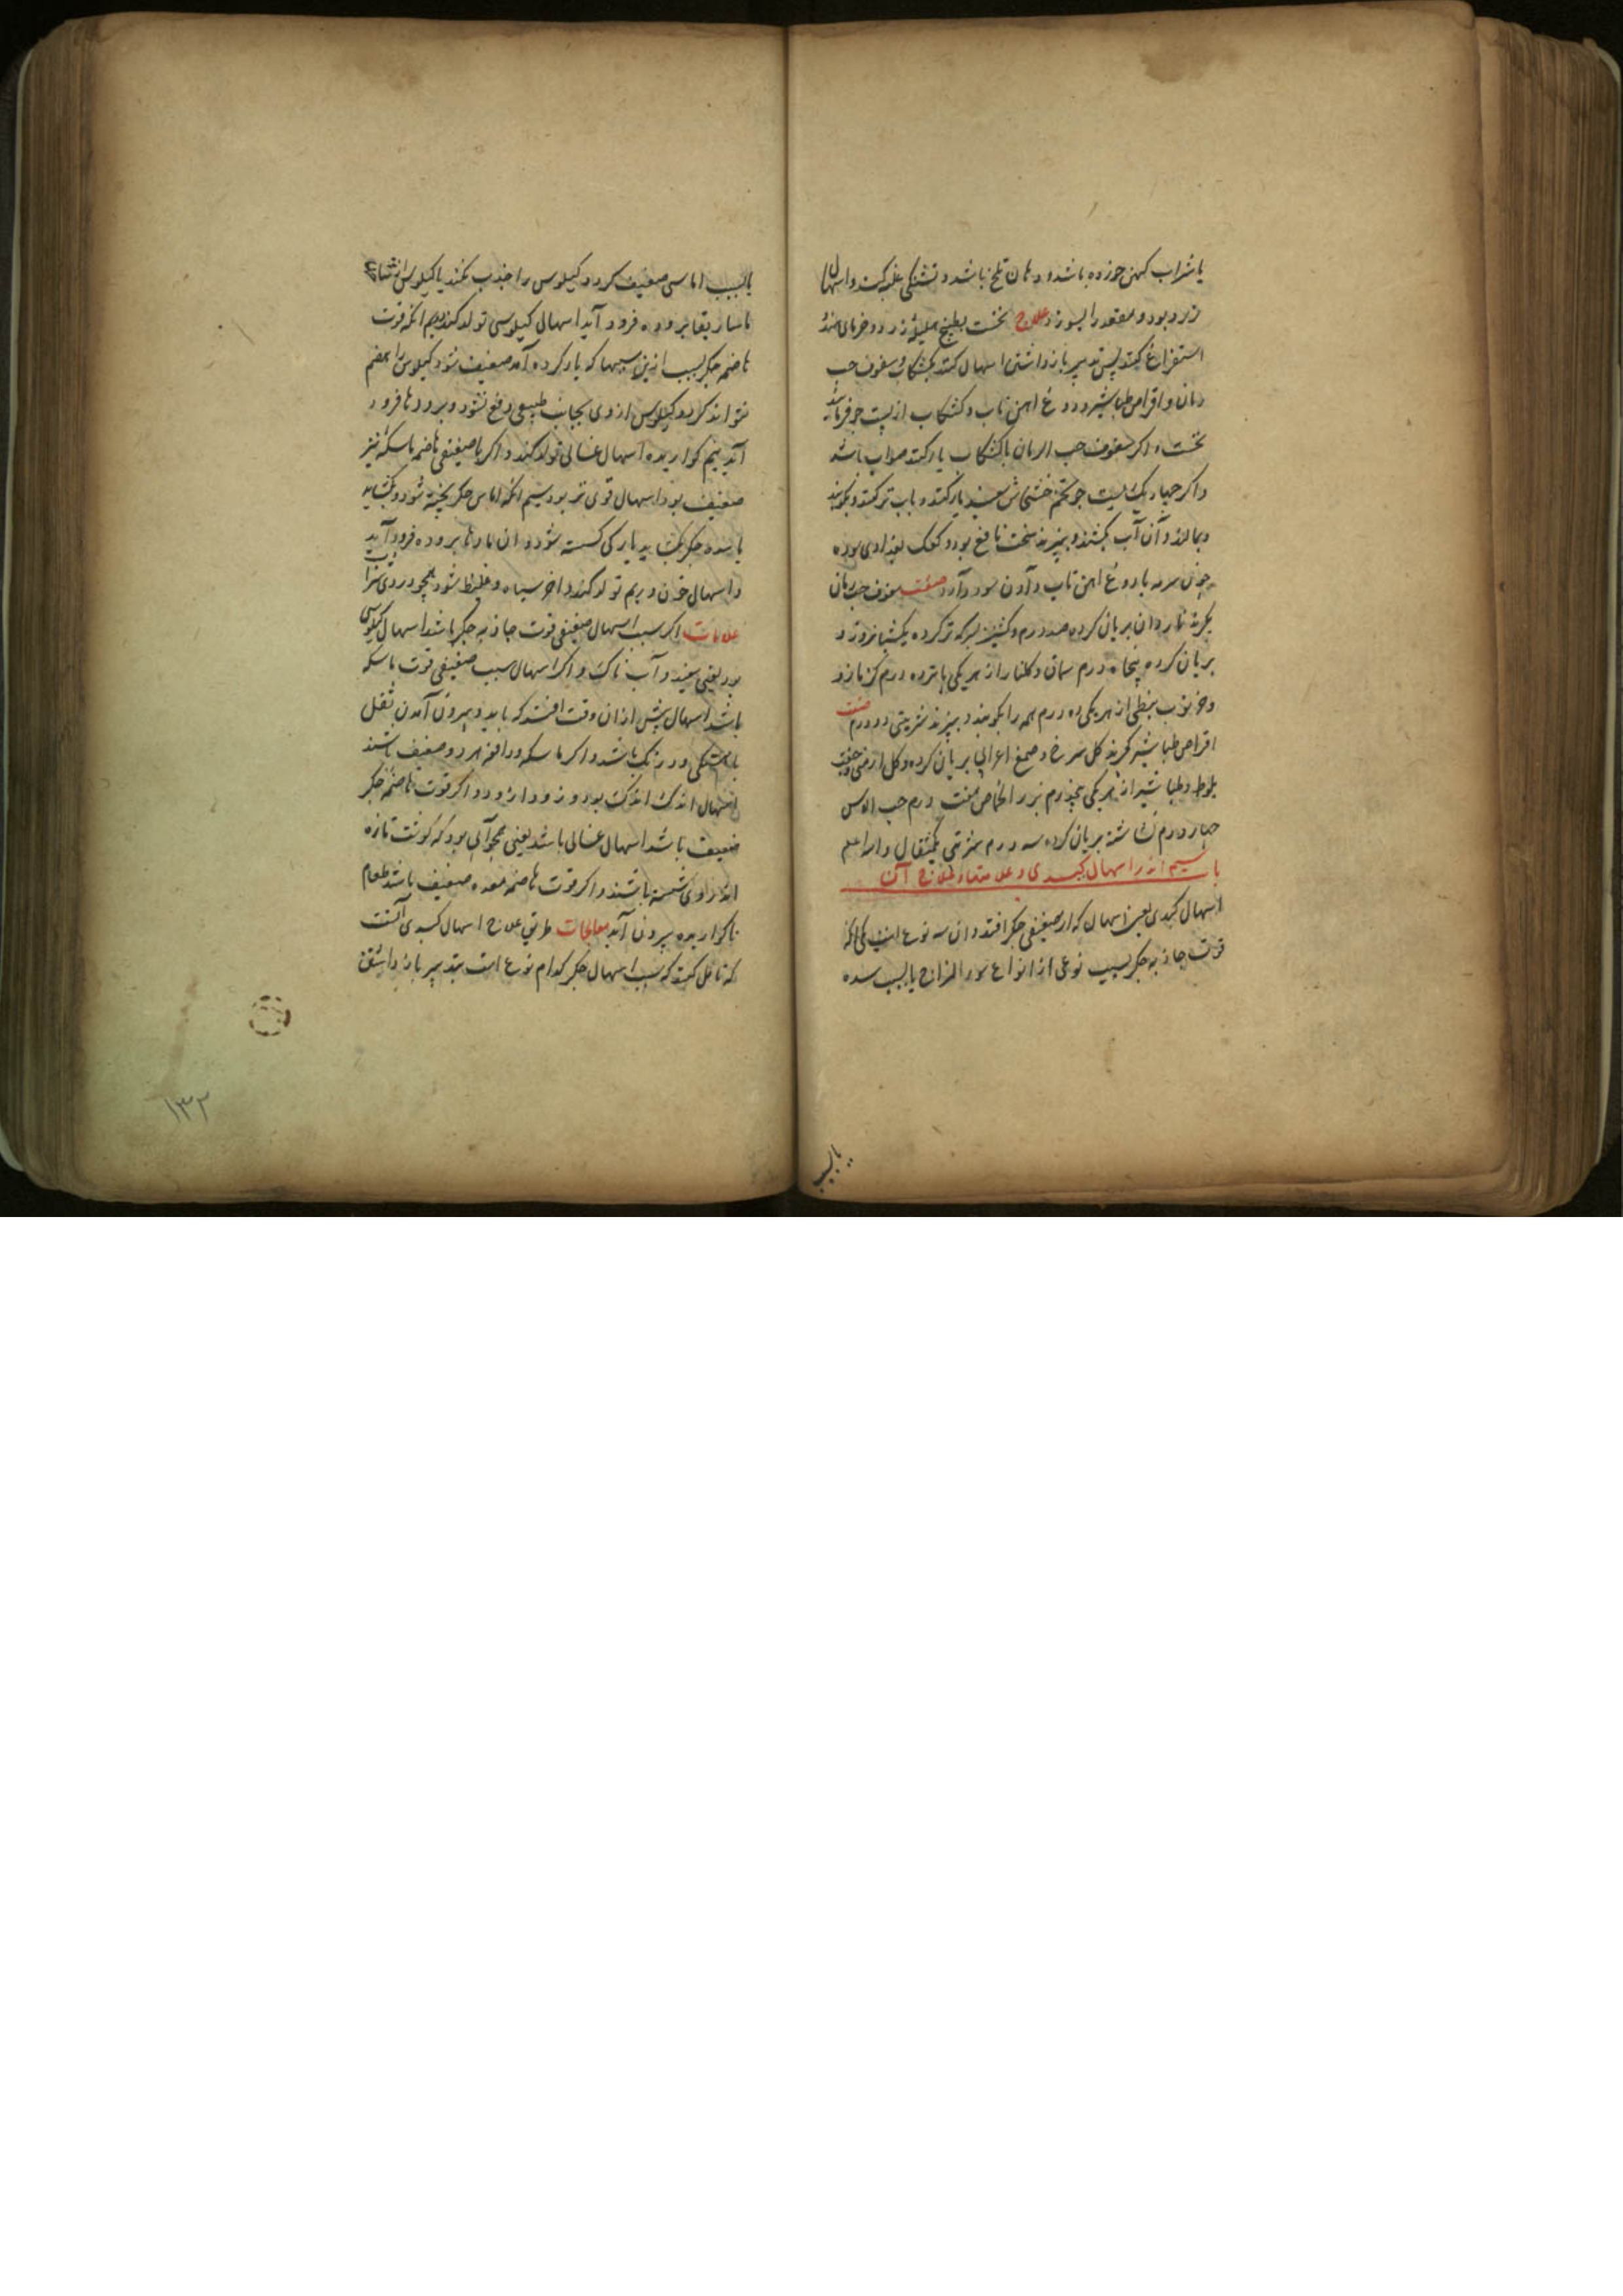 یا شراب کهن خورده باشد و دهان تلخ باشد و تشنکی غلبه کند و اسهال
زرد بود و مقعد را بسوزد علاج نخست بطبیخ هلیله زرد و خرمای هندو
استفراغ کنند پس تدبیر بازداشتن اسهال کنند بکشکاب و سفوف حب
رمان و اقراص طباشیر و دوغ آهن تاب و کشکاب از پست جو فرمایند
نخست و اکر سفوف حب الرمان با کشکاب یار کنند صواب باشد
و اکر جهار یک پست جو تخم خشخاش سفید یار کنند و بآب تر کنند و بکوبند
و بمالند و آن آب بکشند و بپزند سخت نافع بود و کعک بغدادی سوده
چون سرمه با دوغ آهن تاب دادن سود دارد صفت سفوف حب رمان
بکیرند ناردان بریان کرده صد درم و کشنیز بسرکه تر کرده یکشبانروز و
بریان کرده پنجاه درم سماق و کلنار از هر یکی پانزده درم کزمازو
و خرنوب نبطی از هر یکی ده درم همه را بکوبند و ببیزند شربتی دو درم صفت
اقراص طباشیر بکیرند کل سرخ و صمغ اعرابی بریان کرده و کل ارمنی و جفت
بلوط و طباشیر از هر یکی پنجدرم بزر الحماض هفت درم حب الاس
جهار درم نشاسته بریان کرده سه درم شربتی یکمثقال والله اعلم
باب سیم اندر اسهال کبدی و علامتها و علاج آن
اسهال کبدی یعنی اسهال که از ضعیفی جکر افتد و ان سه نوع است یکی انکه
قوت جاذبه جکر بسبب نوعی از انواع سوء المزاج یا بسبب سده
یا بسبب
یا بسبب اماسی ضعیف کردد و کیلوس را جذب نکند یا کیلوس از
ماساریقا بروده فرود آید اسهال کیلوسی تولد کند دویم انکه قوت
هاضمه جکر بسبب ازین سببها که یاد کرده آمد ضعیف شود و کیلوس را هضم
نتواند کرد و کیلوس از وی بجانب طبیعی دفع نشود و برودها فرود
آید نیم کواریده اسهال غسالی تولد کند و اکر با ضعیفی هاضمه ماسکه نیز
ضعیف بود اسهال قوی تر بود سیم انکه اماس جکر پخته شود و بکشاید
یا سده جکر بکشاید یا رکی کسسته شود و ان مادها بروده فرود آید
و اسهال خون و ریم تولد کند و اخر سیاه و غلیظ شود همجو دردی شراب
علامات اکر سبب اسهال ضعیفی قوت جاذبه جکر باشد اسهال کیلوسی
بود یعنی سفید و آب ناک و اکر اسهال سبب ضعیفی قوت ماسکه
باشد اسهال پیش از ان وقت افتد که باید و بیرون آمدن ثفل
باهستکی و درنک باشد و اکر ماسکه و دافعه هر دو ضعیف باشند
اسهال اندک اندک بود و زود ازود و اکر قوت هاضمه جکر
ضعیف باشد اسهال غسالی باشد یعنی همجو آبی بود که کوشت تازه
اندر وی شسته باشند و اکر قوت هاضمه معده ضعیف باشد طعام
ناکواریده بیرون آید معالجات طریق علاج اسهال کبدی آنست
که تامل کنند که سبب اسهال جکر کدام نوع است بتدبیر باز داشتن
۱۳۲